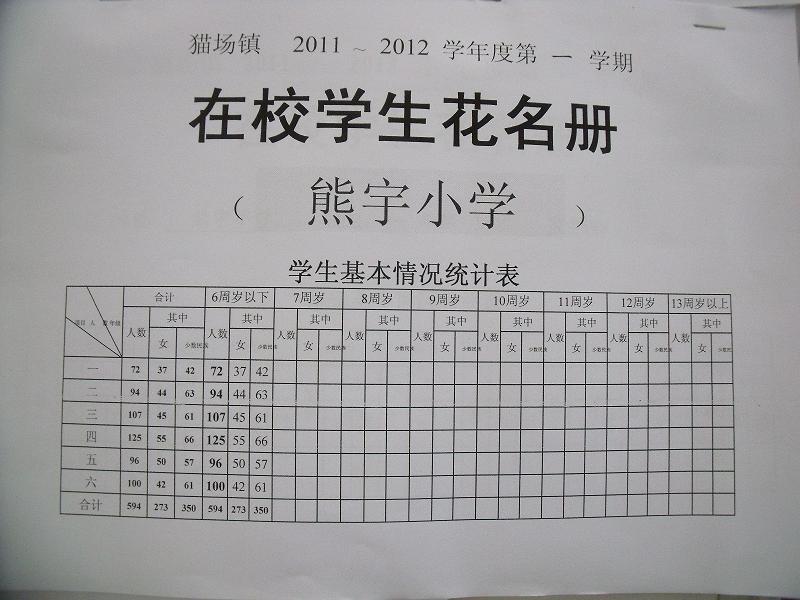 猫场镇 2011 ~ 2012 学年度第 一 学期
在校学生花名册
（ 熊宇小学 ）
学生基本情况统计表
合计 6周岁以下 7周岁 8周岁 9周岁 10周岁 11周岁 12周岁 13周岁以上
项目 人数 年级 人数 其中 人数 其中 人数 其中 人数 其中 人数 其中 人数 其中 人数 其中 人数 其中 人数 其中
女 少数民族 女 少数民族 女 少数民族 女 少数民族 女 少数民族 女 少数民族 女 少数民族 女 少数民族 女
一 72 37 42 72 37 42
二 94 44 63 94 44 63
三 107 45 61 107 45 61
四 125 55 66 125 55 66
五 96 50 57 96 50 57
六 100 42 61 100 42 61
合计 594 273 350 594 273 350